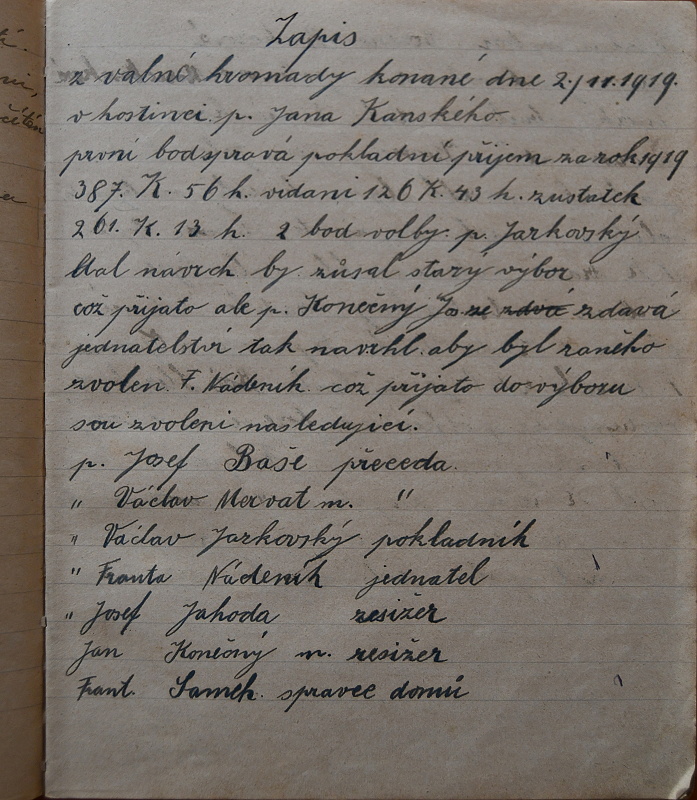 Zapis
z valné hromady konané dne 2./11.1919.
v hostinci p. Jana Kanského
první bod spravá pokladní přijem za rok 1919
387. K. 56 h. vidani 126 K. 43 h. zustatek
261. K. 13 h. 2 bod volby. p. Jarkovský
dal návrch by zůsal starý výbor
což přijato ale p. Konečný Jo se zdává
jednatelství tak navrhl aby byl zaněho
zvolen F. Nádeník což přijato do výboru
sou zvoleni nasledujicí.
p. Josef Baše přeceda.
" Václav Mervat m. "
" Václav Jarkovský pokladník
" Franta Nádeník jednatel
" Josef Jahoda resižer
Jan Konečný m. resižer
Frant. Samek. spravce domů